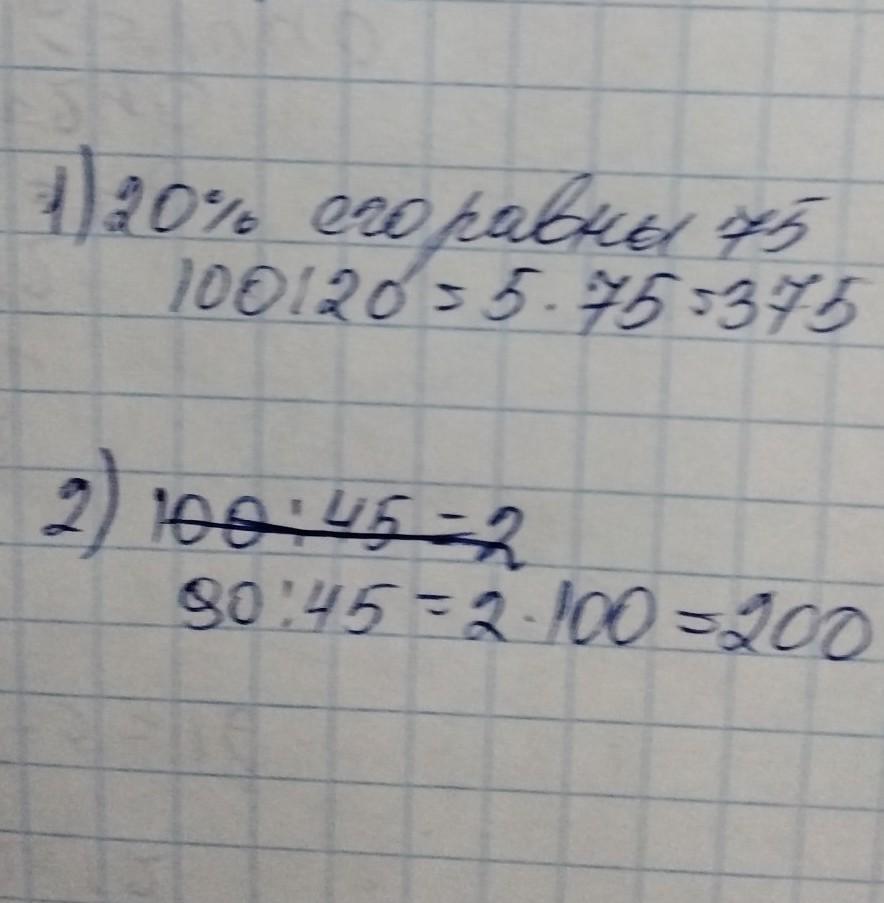 1) 20% его равны 75
100:20 = 5 · 75 = 375
2) 100:45 = 2
90:45 = 2 · 100 = 200